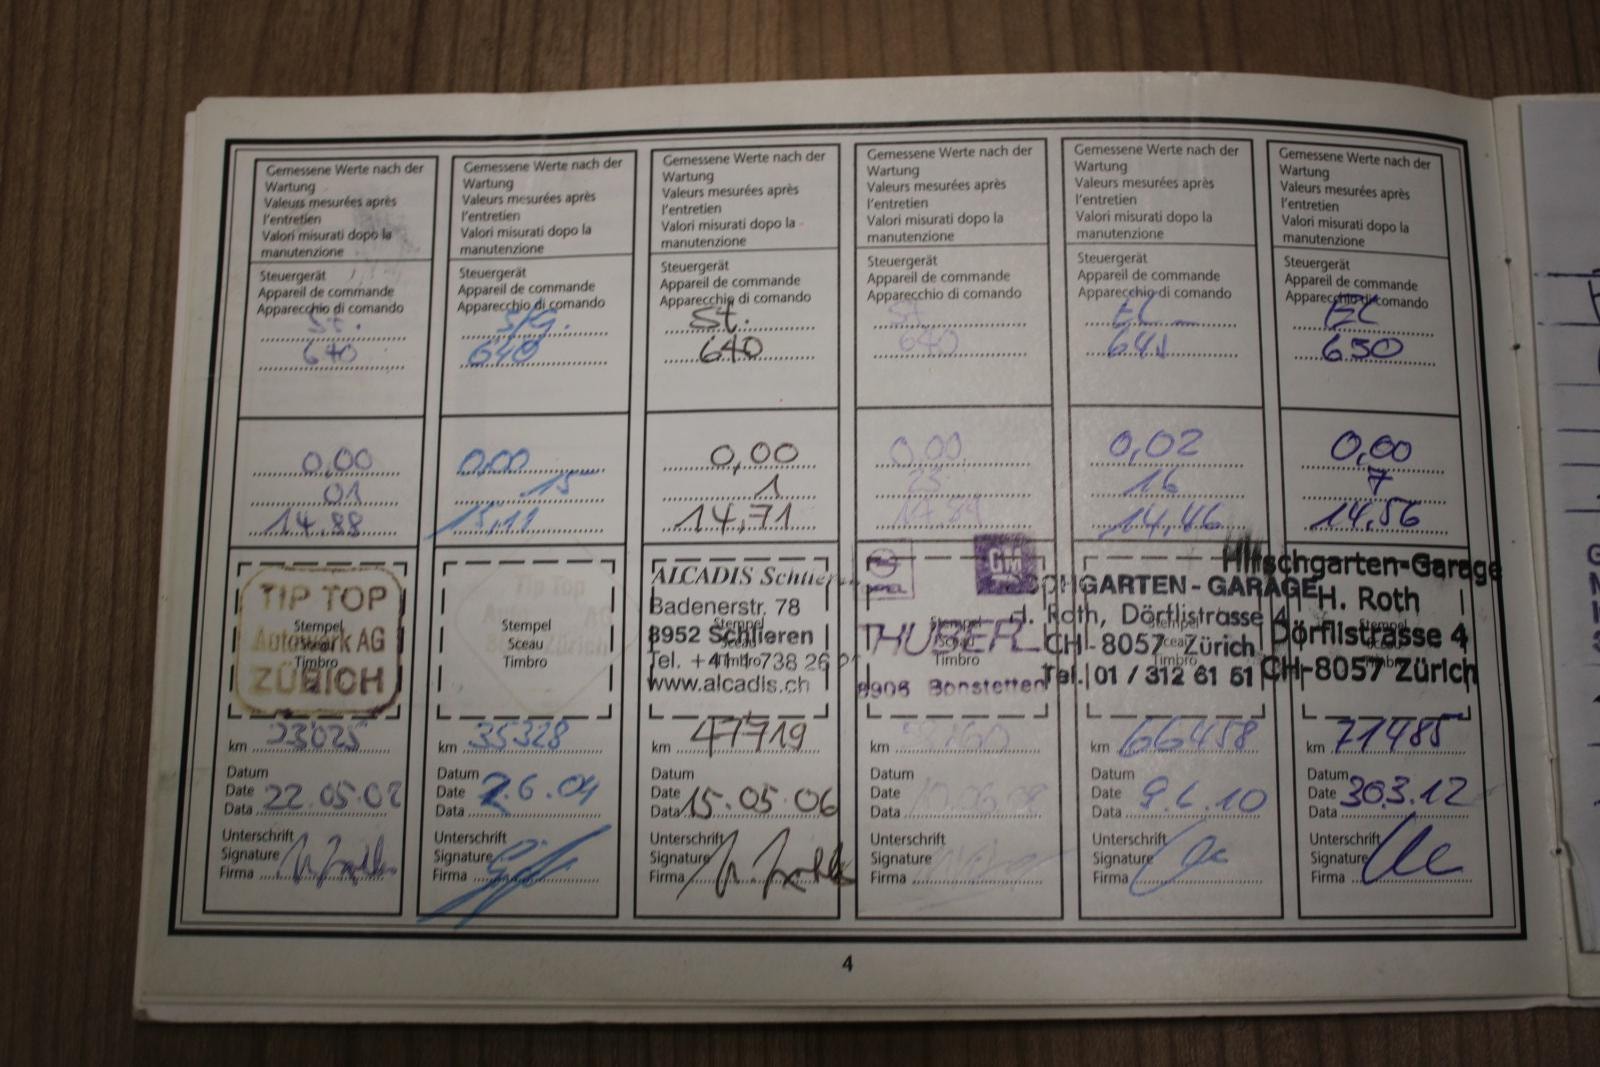 Gemessene Werte nach der
Wartung
Valeurs mesurées après
l'entretien
Valori misurati dopo la
manutenzione
Steuergerät
Appareil de commande
Apparecchio di comando
St.
640
0,00
01
14.88
TIP TOP
Autowerk AG
ZÜRICH
Stempel
Sceau
Timbro
km 23025
Datum
Date
Data 22.05.02
Unterschrift
Signature
Firma
Gemessene Werte nach der
Wartung
Valeurs mesurées après
l'entretien
Valori misurati dopo la
manutenzione
Steuergerät
Appareil de commande
Apparecchio di comando
S/G.
640
0,00
15
15,19
Tip Top
AG
Zürich
Stempel
Sceau
Timbro
km 35328
Datum
Date 2.6.04
Data
Unterschrift
Signature
Firma
Gemessene Werte nach der
Wartung
Valeurs mesurées après
l'entretien
Valori misurati dopo la
manutenzione
Steuergerät
Appareil de commande
Apparecchio di comando
St.
640
0,00
1
14,71
ALCADIS Schlieren
Badenerstr. 78
8952 Schlieren
Tel. +41 1 738 26
www.alcadis.ch
Stempel
Sceau
Timbro
km 47719
Datum
Date
Data 15.05.06
Unterschrift
Signature
Firma
Gemessene Werte nach der
Wartung
Valeurs mesurées après
l'entretien
Valori misurati dopo la
manutenzione
Steuergerät
Appareil de commande
Apparecchio di comando
St
640
0.00
23
14.89
OPEL
GM
HUBER
8906 Bonstetten
Stempel
Sceau
Timbro
km
Datum
Date
Data
Unterschrift
Signature
Firma
Gemessene Werte nach der
Wartung
Valeurs mesurées après
l'entretien
Valori misurati dopo la
manutenzione
Steuergerät
Appareil de commande
Apparecchio di comando
EC
641
0,02
16
14,46
SCHGARTEN - GARAGE
H. Roth, Dörflistrasse 4
CH - 8057 Zürich
Tel. 01 / 312 61 61
Stempel
Sceau
Timbro
km 66458
Datum
Date 9.6.10
Data
Unterschrift
Signature
Firma
Gemessene Werte nach der
Wartung
Valeurs mesurées après
l'entretien
Valori misurati dopo la
manutenzione
Steuergerät
Appareil de commande
Apparecchio di comando
EC
650
0,00
7
14,56
Hirschgarten-Garage
H. Roth
Dörflistrasse 4
CH-8057 Zürich
Stempel
Timbro
km 71485
Datum
Date 30.3.12
Data
Unterschrift
Signature
Firma
4